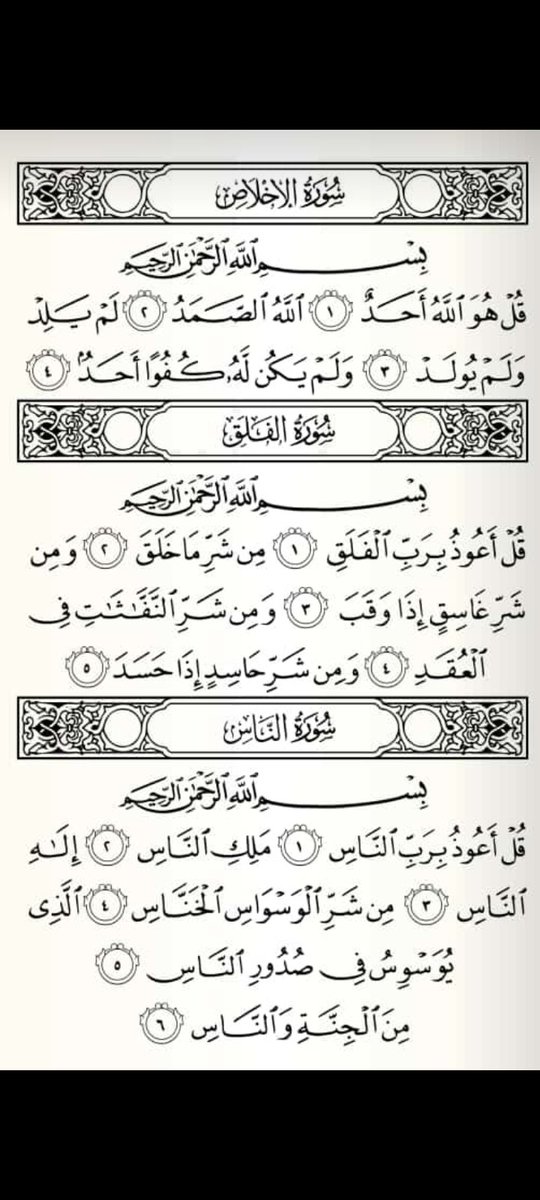 سُورَةُ الإِخْلَاصِ
بِسْمِ ٱللَّهِ ٱلرَّحْمَٰنِ ٱلرَّحِيمِ
قُلْ هُوَ ٱللَّهُ أَحَدٌ ١ ٱللَّهُ ٱلصَّمَدُ ٢ لَمْ يَلِدْ
وَلَمْ يُولَدْ ٣ وَلَمْ يَكُن لَّهُۥ كُفُوًا أَحَدٌۢ ٤
سُورَةُ الفَلَقِ
بِسْمِ ٱللَّهِ ٱلرَّحْمَٰنِ ٱلرَّحِيمِ
قُلْ أَعُوذُ بِرَبِّ ٱلْفَلَقِ ١ مِن شَرِّ مَا خَلَقَ ٢ وَمِن
شَرِّ غَاسِقٍ إِذَا وَقَبَ ٣ وَمِن شَرِّ ٱلنَّفَّٰثَٰتِ فِى
ٱلْعُقَدِ ٤ وَمِن شَرِّ حَاسِدٍ إِذَا حَسَدَ ٥
سُورَةُ النَّاسِ
بِسْمِ ٱللَّهِ ٱلرَّحْمَٰنِ ٱلرَّحِيمِ
قُلْ أَعُوذُ بِرَبِّ ٱلنَّاسِ ١ مَلِكِ ٱلنَّاسِ ٢ إِلَٰهِ
ٱلنَّاسِ ٣ مِن شَرِّ ٱلْوَسْوَاسِ ٱلْخَنَّاسِ ٤ ٱلَّذِى
يُوَسْوِسُ فِى صُدُورِ ٱلنَّاسِ ٥
مِنَ ٱلْجِنَّةِ وَٱلنَّاسِ ٦